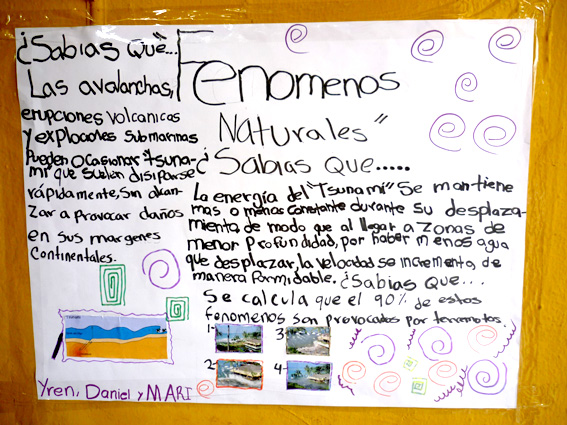 ¿Sabias Que...
Las avalanchas,
erupciones volcanicas
y explociones submarinas
Pueden ocasionar "tsuna-
mi que suelen disiparse
rápidamente, sin alcan-
zar a provocar daños
en sus margenes
continentales.
Fenomenos
Naturales"
¿Sabias Que.....
La energía del "Tsunami" Se mantiene
mas o menos constante durante su desplaza-
miento, de modo que al llegar a zonas de
menor profundidad, por haber menos agua
que desplazar, la velocidad se incrementa de
manera formidable. ¿Sabias Que...
Se calcula que el 90% de estos
fenomenos son provocados por terremotos.
1-
3-
2-
4-
Yren, Daniel y MARI